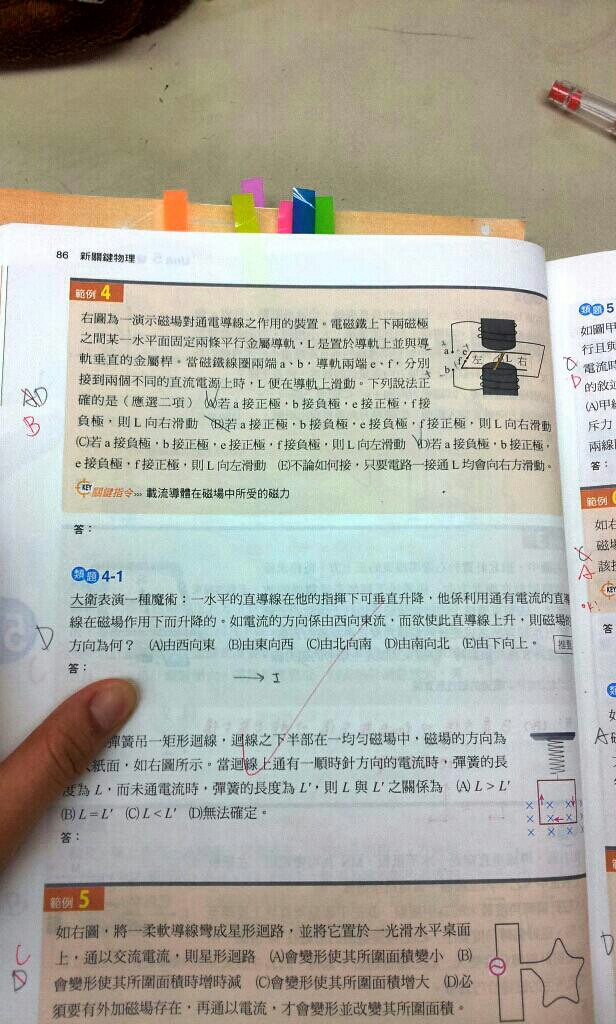 86 新關鍵物理
範例 4
右圖為一演示磁場對通電導線之作用的裝置。電磁鐵上下兩磁極
之間某一水平面固定兩條平行金屬導軌，L是置於導軌上並與導
軌垂直的金屬桿。當磁鐵線圈兩端a、b，導軌兩端e、f，分別
接到兩個不同的直流電源上時，L便在導軌上滑動。下列說法正
確的是（應選二項）(A)若a接正極，b接負極，e接正極，f接
負極，則L向右滑動 (B)若a接正極，b接負極，e接負極，f接正極，則L向右滑動
(C)若a接負極，b接正極，e接正極，f接負極，則L向左滑動 (D)若a接負極，b接正極，
e接負極，f接正極，則L向左滑動 (E)不論如何接，只要電路一接通L均會向右方滑動。
a
b
e
f
左
L
右
AD
B
KEY 關鍵指令>>> 載流導體在磁場中所受的磁力
答：
類題 4-1
大衛表演一種魔術：一水平的直導線在他的指揮下可垂直升降，他係利用通有電流的直導
線在磁場作用下而升降的。如電流的方向係由西向東流，而欲使此直導線上升，則磁場的
方向為何？ (A)由西向東 (B)由東向西 (C)由北向南 (D)由南向北 (E)由下向上。
D
答：
→ I
彈簧吊一矩形迴線，迴線之下半部在一均勻磁場中，磁場的方向為
紙面，如右圖所示。當迴線上通有一順時針方向的電流時，彈簧的長
度為 L，而未通電流時，彈簧的長度為 L'，則 L 與 L' 之關係為 (A) L > L'
(B) L = L' (C) L < L' (D)無法確定。
答：
範例 5
如右圖，將一柔軟導線彎成星形迴路，並將它置於一光滑水平桌面
上，通以交流電流，則星形迴路 (A)會變形使其所圍面積變小 (B)
會變形使其所圍面積時增時減 (C)會變形使其所圍面積增大 (D)必
須要有外加磁場存在，再通以電流，才會變形並改變其所圍面積。
C
D
類題 5
如圖甲
行且與
電流時
的敘述
(A)甲
斥力
兩線
答：
D
範例
如右
磁場
該
A
KEY
A
D